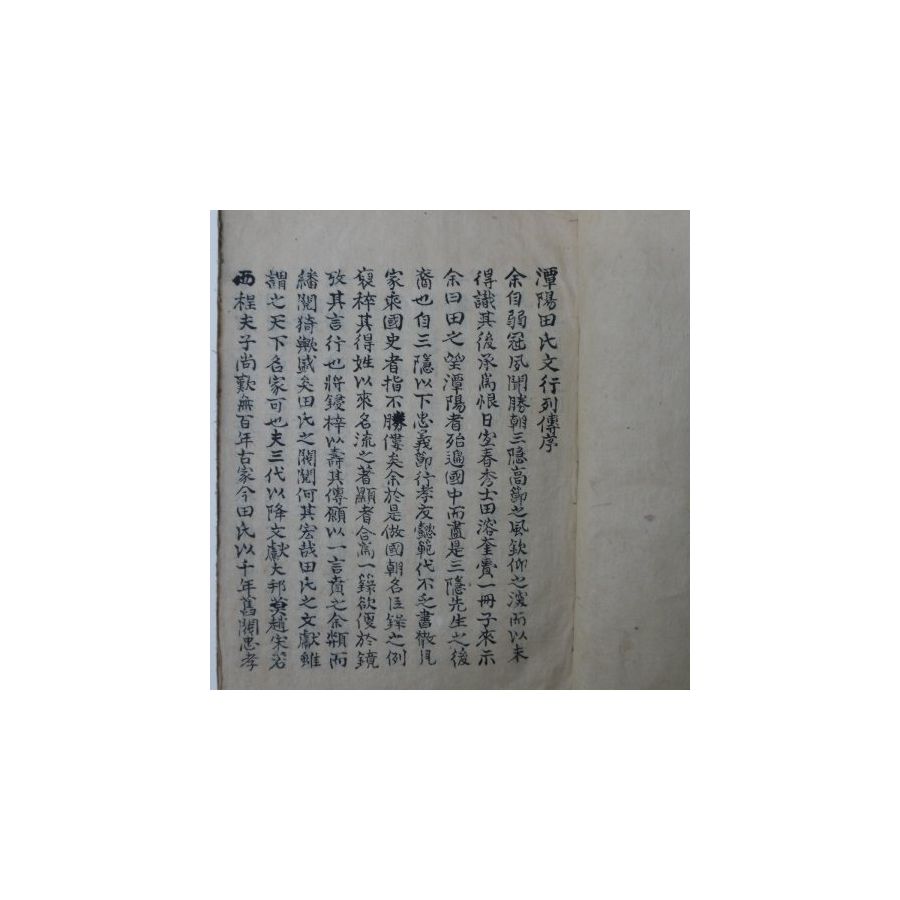 潭陽田氏文行列傳序
余自弱冠夙聞勝朝三隱高節之風欽仰之深而以未
得識其後承爲恨日宜春秀士田溶奎賷一冊子來示
余曰田之望潭陽者殆遍國中而盡是三隱先生之後
裔也自三隱以下忠義節行孝友懿範代不乏書散見
家乘國史者指不勝僂矣余於是倣國朝名臣錄之例
裒稡其得姓以來名流之著顯者合爲一錄欲便於鏡
攷其言行也將鋟梓以壽其傳願以一言賁之余頮而
繙閱猗歟盛矣田氏之閥閱何其宏哉田氏之文獻雖
謂之天下名家可也夫三代以降文獻大邦莫趙宋若
而程夫子尚歎無百年古家今田氏以千年舊閥忠孝